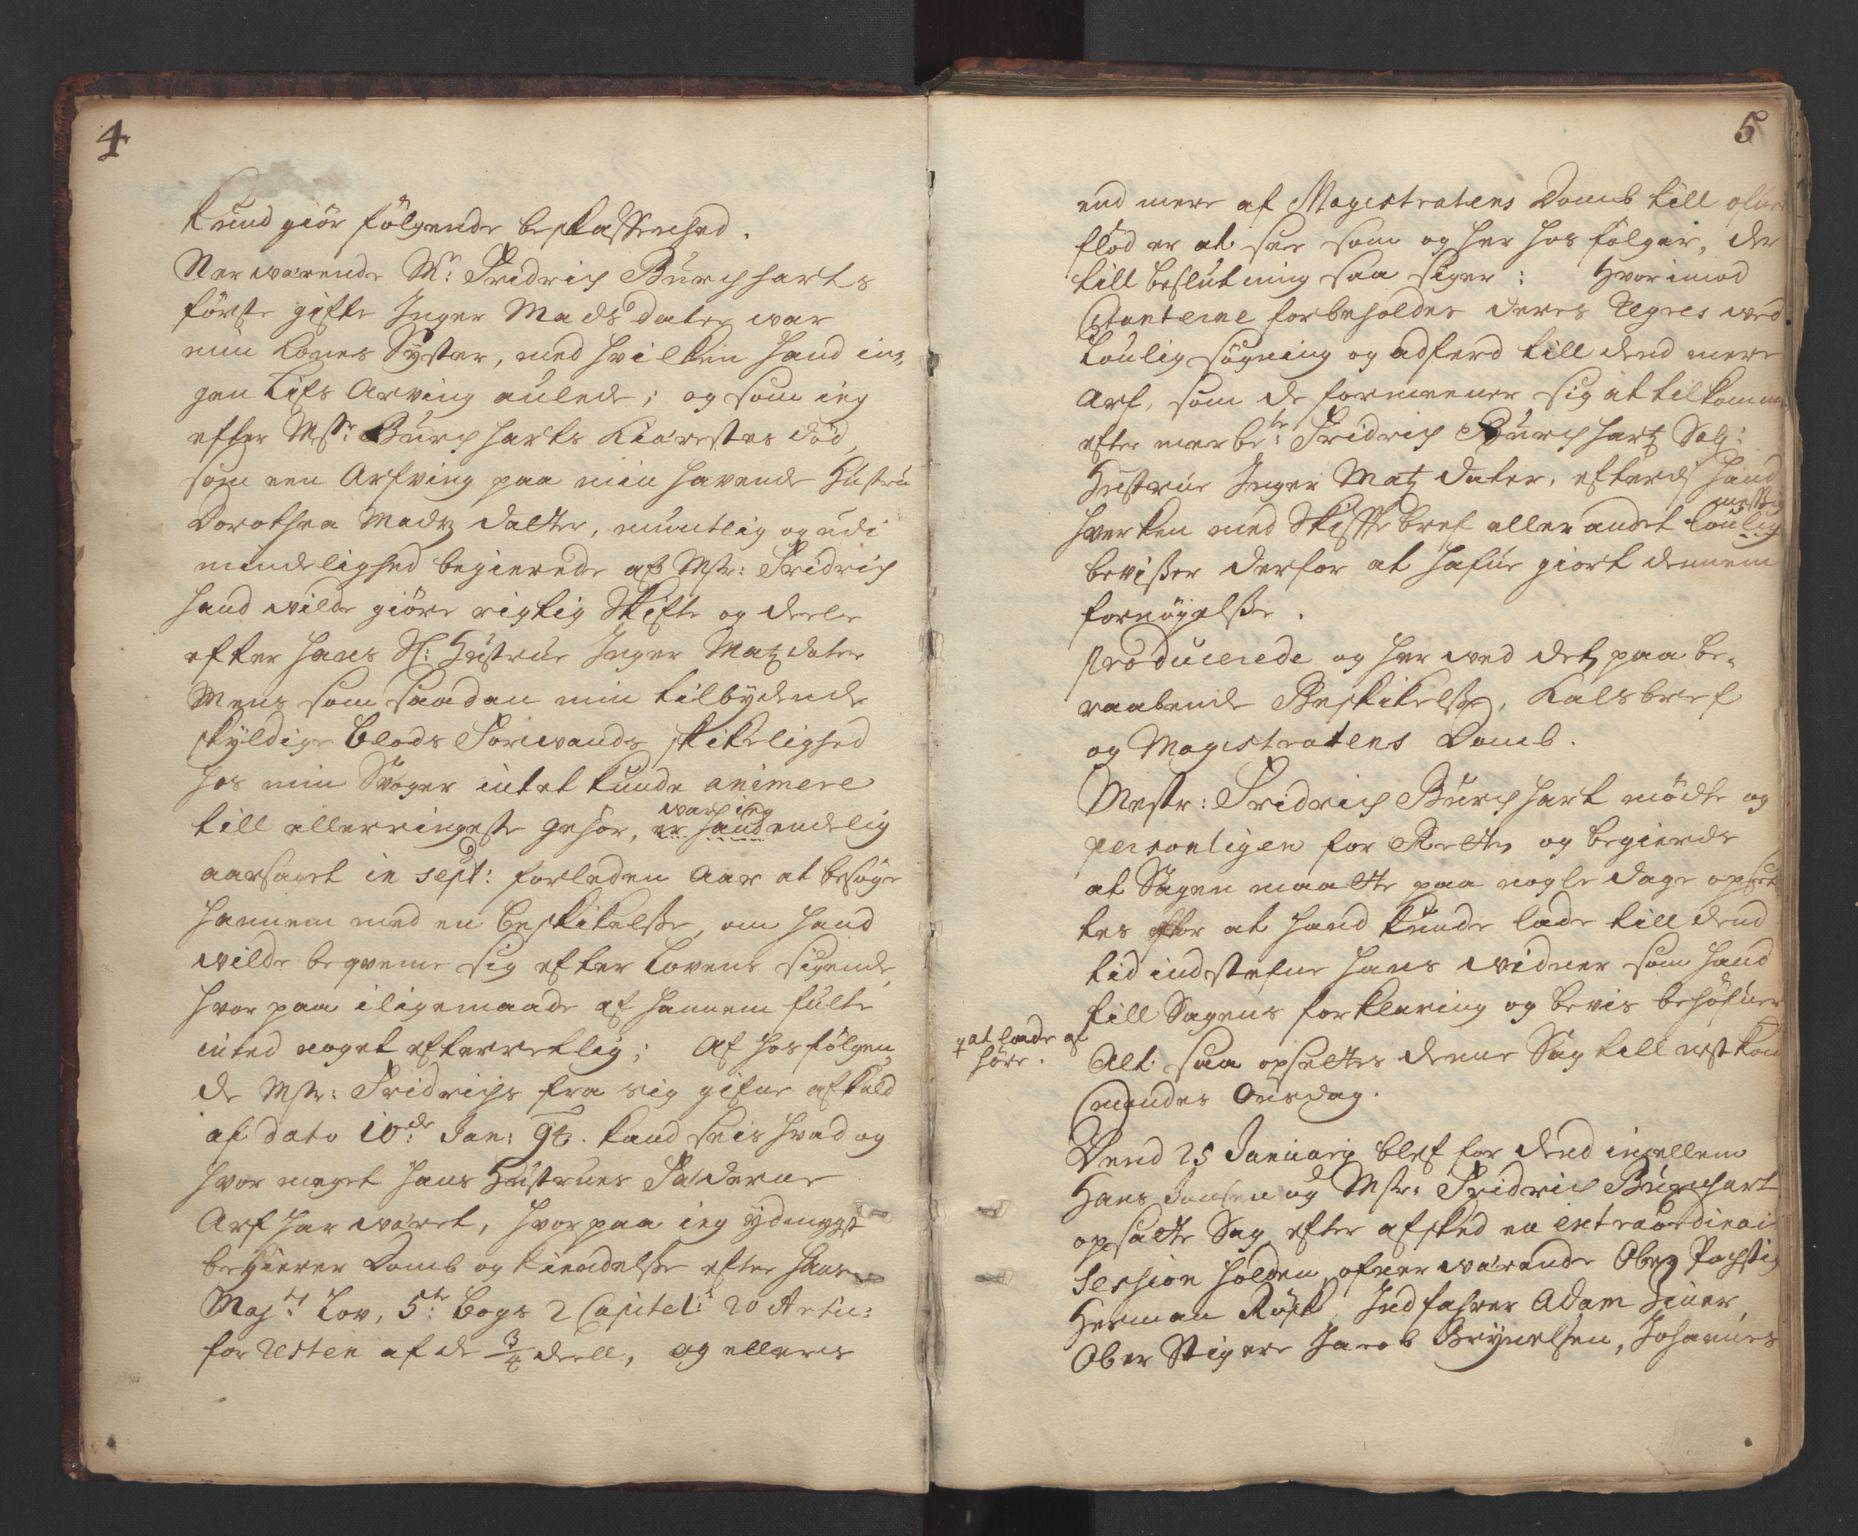 4
kund giör fölgende beskaffenhed.
Nerwærende Mr: Fridrich Burchharts
förste gifte Inger Mads dater war
min Kones Syster, med hvilken hand in„
gen Lifs Arving aulede; og som ieg
efter Mstr: Burchharts Kiærestes död,
som een Arfving paa min havende Hustru
Dorothea Madtz datter, muntlig og udi
mindelighed begierede af Mstr: Fridrich
hand wilde giöre rigtig Skifte og deele
efter hans Sl: Hustrue Inger Matz dater
Mens som saadan min tilbydende
skyldige blods Forwands skikelighed
hos min Swoger intet kunde animere
till allerringeste gehör, er hand endelig
warh ieg
aarsaget in Sept: forleden Aar at besöge
hannem med en beskikelße, om hand
wilde beqveme sig efter Lovens sigende,
hvor paa iligemaade af hannem fulte
inted noget efterretlig; Af hosfölgen
de Mstr: Fridrichs fra sig gifne afkald
af dato 10de Jan: 94. kand seis hvad og
hvor meget hans Hustrues Fæderne
Arf har wæret, hvorpaa ieg ydmygst
begierer Domb og kiendelße efter hans
Majts: Lov, 5te bogs 2 Capitel: 20 Artic:
for uden af de 3/4 deell, og elleris
5
end mere af Magistratens Domb till ofver
flöd er at see som og her hos fölger, der
till beslutning saa siger: Hvorimod
Citanterne forbeholdes deres Regres wed
Loulig sögning og adferd till dend mere
Arf, som de formeener sig at tilkomme
efter merbete: Fridrich Burchhartz Salg:
Hustrue Inger Matz dater, efterdj hand
messig
hverken med Skifftebref aller andet loulig
bevißer derfor at hafue giort dennem
fornöyelße.
Producerede og her wed det paa be„
raabende Beskikelße, Kalsbref
og Magistratens Domb.
Mestr: Fridrich Burchhart mödte og
personligen for Retten og begierde
at Sagen maatte paa nogle dage opset
tes for at hand kunde lade till dend
tid indstefne hans widner som hand
till Sagens forklaring og bevis behöfuer
at lade af
höre.
Alt saa opsettes denne Sag till nestkom
mendes Onsdag.
Dend 25 Januarij blef for dend imellem
Hans Jonsen og Mstr: Fridrich Burchhart
opsatte Sag efter afsked en extraordinair
Session holden, ofverwærende Oberg
Herman Rösk, Indfahrer Adam
Ober Stigere Jacob Brynelsen, Johannes